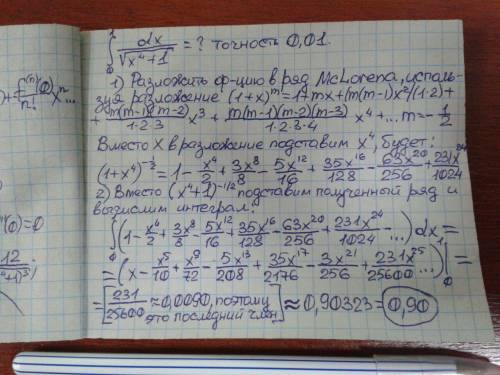 ∫₀¹ dx/√(x⁴+1) = ? точность 0,01.
1) Разложить ф-цию в ряд McLorena, исполь-
зуя разложение (1+x)ᵐ=1+mx+(m(m-1)x²/(1·2)+
+ m(m-1)(m-2)/(1·2·3) x³ + m(m-1)(m-2)(m-3)/(1·2·3·4) x⁴ ... m=-1/2
) + f⁽ⁿ⁾(0)/n! xⁿ...
Вместо X в разложение подставим x⁴, будет:
(1+x⁴)^(-1/2) = 1 - x⁴/2 + 3x⁸/8 - 5x¹²/16 + 35x¹⁶/128 - 63x²⁰/256 + 231x²⁴/1024
2) Вместо (x⁴+1)^(-1/2) подставим полученный ряд и
вычислим интеграл:
"(0)=0
∫₀¹ (1 - x⁴/2 + 3x⁸/8 - 5x¹²/16 + 35x¹⁶/128 - 63x²⁰/256 + 231x²⁴/1024 - ...) dx =
= (x - x⁵/10 + x⁹/72 - 5x¹³/208 + 35x¹⁷/2176 - 3x²¹/256 + 231x²⁵/25600 ...)|₀¹ =
= [231/25600 ≈ 0,0090, поэтому
это последний член] ≈ 0,90323 = 0,90